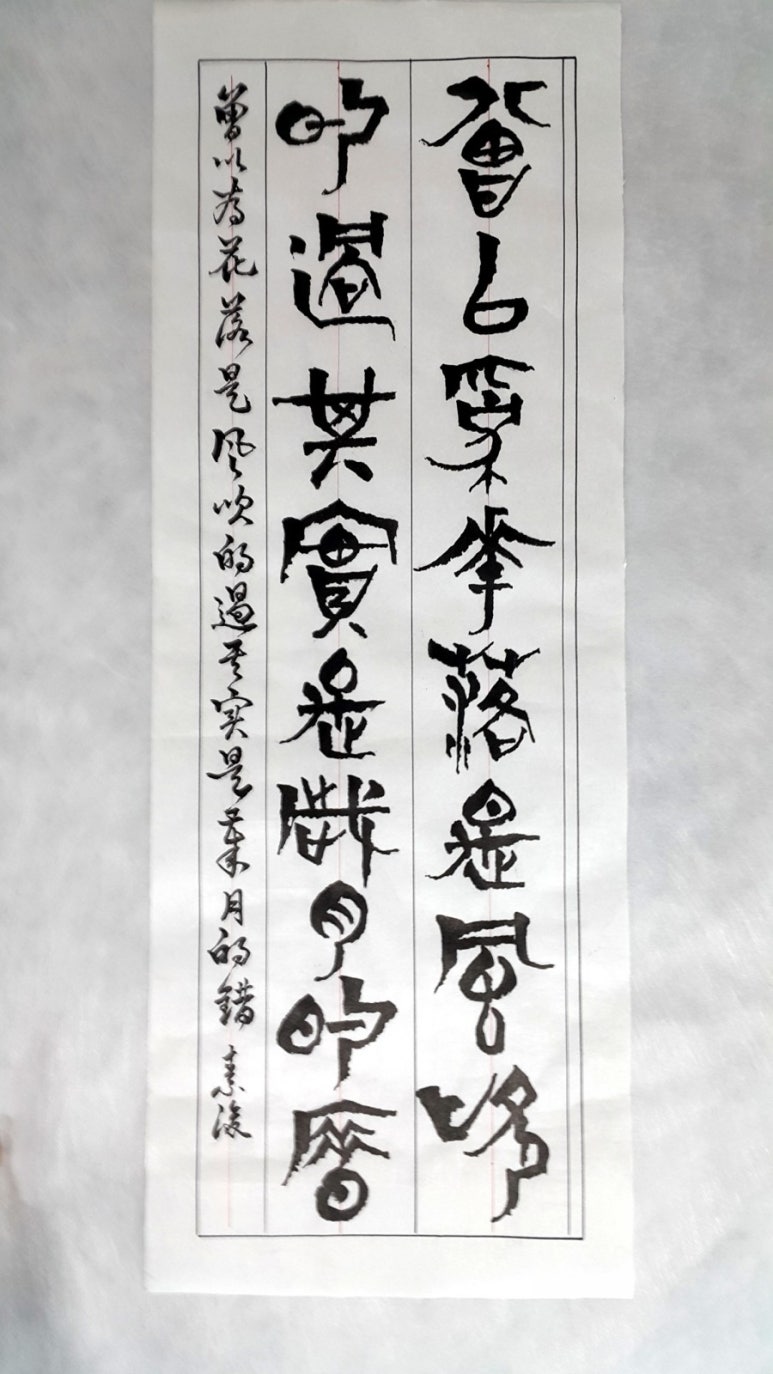 曾以為華落是風吹
的過其實是歲月的厝
曾以為花落是风吹的過其实是歲月的錯 素